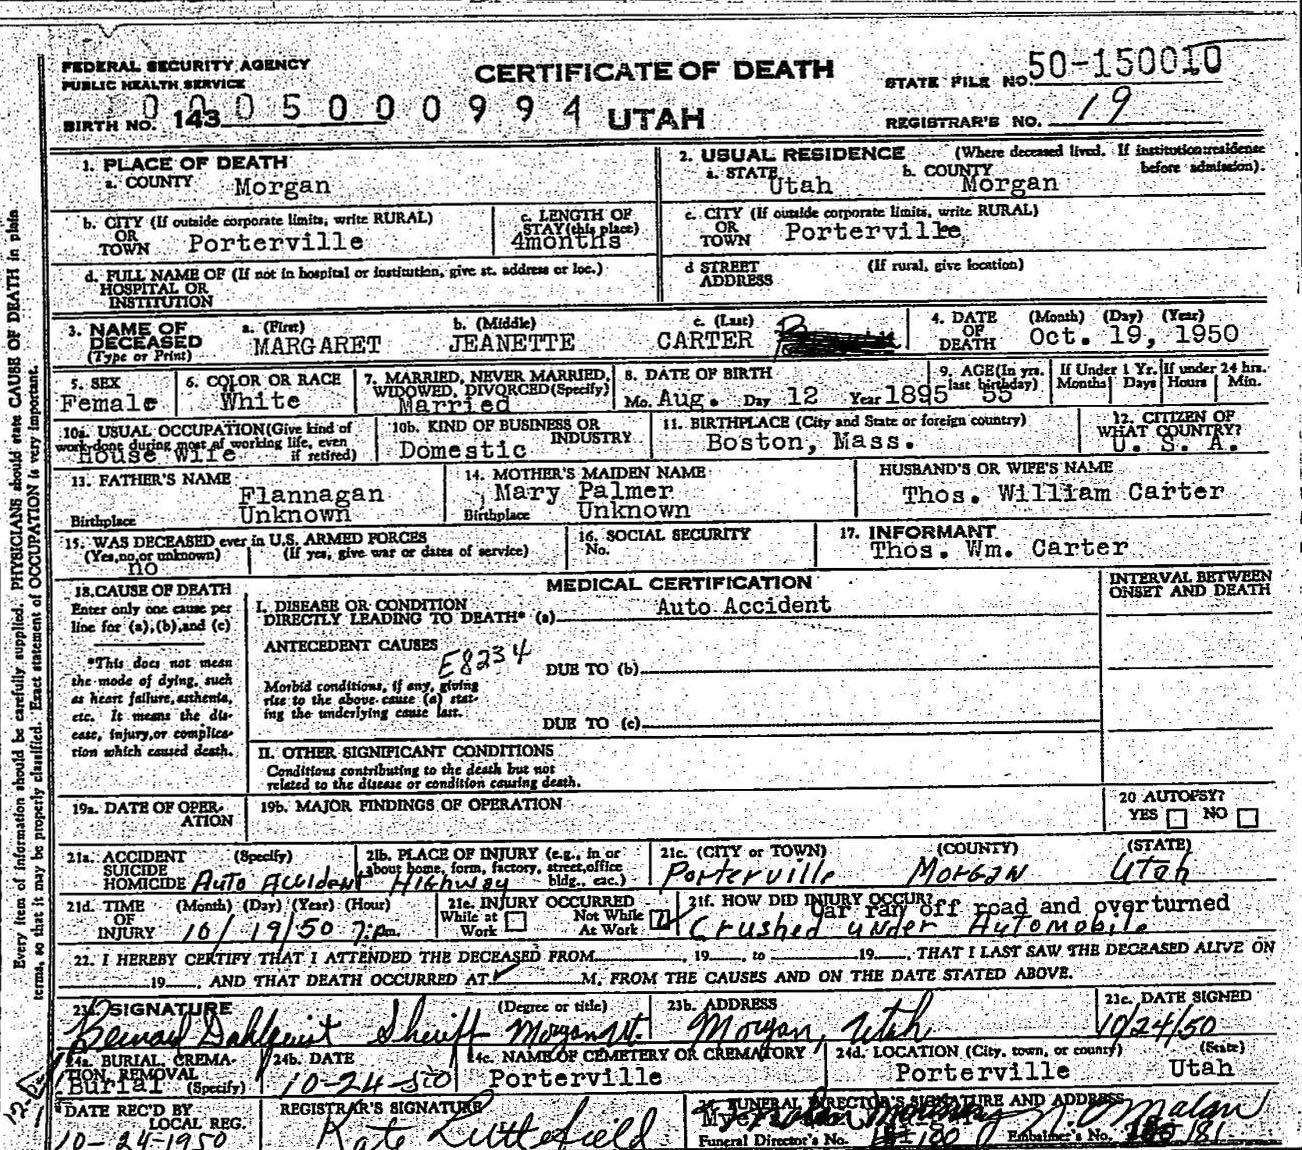 FEDERAL SECURITY AGENCY
PUBLIC HEALTH SERVICE
CERTIFICATE OF DEATH
STATE FILE NO. 50-150010
BIRTH NO. 143 0005000994
UTAH
REGISTRAR'S NO. 19
1. PLACE OF DEATH
a. COUNTY Morgan
2. USUAL RESIDENCE (Where deceased lived. If institution: residence before admission).
a. STATE Utah b. COUNTY Morgan
b. CITY (If outside corporate limits, write RURAL) OR TOWN Porterville
c. LENGTH OF STAY (this place) 4months
c. CITY (If outside corporate limits, write RURAL) OR TOWN Porterville
d. FULL NAME OF (If not in hospital or institution, give st. address or loc.) HOSPITAL OR INSTITUTION
d STREET ADDRESS (If rural, give location)
3. NAME OF DECEASED (Type or Print)
a. (First) MARGARET
b. (Middle) JEANETTE
c. (Last) CARTER
4. DATE OF DEATH (Month) (Day) (Year) Oct. 19, 1950
5. SEX Female
6. COLOR OR RACE White
7. MARRIED, NEVER MARRIED, WIDOWED, DIVORCED (Specify) Married
8. DATE OF BIRTH Mo. Aug. Day 12 Year 1895
9. AGE (In yrs. last birthday) 55
If Under 1 Yr. Months Days
If under 24 hrs. Hours Min.
10a. USUAL OCCUPATION (Give kind of work done during most of working life, even if retired) House Wife
10b. KIND OF BUSINESS OR INDUSTRY Domestic
11. BIRTHPLACE (City and State or foreign country) Boston, Mass.
12. CITIZEN OF WHAT COUNTRY? U. S. A.
13. FATHER'S NAME Flannagan
Birthplace Unknown
14. MOTHER'S MAIDEN NAME Mary Palmer
Birthplace Unknown
HUSBAND'S OR WIFE'S NAME Thos. William Carter
15. WAS DECEASED ever in U.S. ARMED FORCES
(Yes, no, or unknown) (If yes, give war or dates of service)
no
16. SOCIAL SECURITY No.
17. INFORMANT Thos. Wm. Carter
18. CAUSE OF DEATH
Enter only one cause per line for (a), (b), and (c)
*This does not mean the mode of dying, such as heart failure, asthenia, etc. It means the disease, injury, or complication which caused death.
MEDICAL CERTIFICATION
INTERVAL BETWEEN ONSET AND DEATH
I. DISEASE OR CONDITION DIRECTLY LEADING TO DEATH* (a) Auto Accident
ANTECEDENT CAUSES
E8234
DUE TO (b)
Morbid conditions, if any, giving rise to the above cause (a) stating the underlying cause last.
DUE TO (c)
II. OTHER SIGNIFICANT CONDITIONS
Conditions contributing to the death but not related to the disease or condition causing death.
19a. DATE OF OPERATION
19b. MAJOR FINDINGS OF OPERATION
20 AUTOPSY? YES NO
21a. ACCIDENT SUICIDE HOMICIDE (Specify) Auto Accident
21b. PLACE OF INJURY (e.g., in or about home, form, factory, street, office bldg., etc.) Highway
21c. (CITY or TOWN) (COUNTY) (STATE)
Porterville Morgan Utah
21d. TIME OF INJURY (Month) (Day) (Year) (Hour) 10/19/50 7 p.m.
21e. INJURY OCCURRED While at Work Not While At Work
21f. HOW DID INJURY OCCUR? Car ran off road and overturned
Crushed under Automobile
22. I HEREBY CERTIFY THAT I ATTENDED THE DECEASED FROM , 19 , to 19 , THAT I LAST SAW THE DECEASED ALIVE ON
19 , AND THAT DEATH OCCURRED AT M, FROM THE CAUSES AND ON THE DATE STATED ABOVE.
23a SIGNATURE (Degree or title)
Dahlquist Sheriff Morgan Ut.
23b. ADDRESS Morgan, Utah
23c. DATE SIGNED 10/24/50
24a. BURIAL, CREMATION, REMOVAL (Specify) Burial
24b. DATE 10-24-50
24c. NAME OF CEMETERY OR CREMATORY Porterville
24d. LOCATION (City, town, or county) (State) Porterville Utah
DATE REC'D BY LOCAL REG. 10-24-1950
REGISTRAR'S SIGNATURE Kate Littlefield
25. FUNERAL DIRECTOR'S SIGNATURE AND ADDRESS
Malan
Funeral Director's No. 180 Embalmer's No. 181
Every item of information should be carefully supplied. PHYSICIANS should state CAUSE OF DEATH in plain
terms, so that it may be properly classified. Exact statement of OCCUPATION is very important.